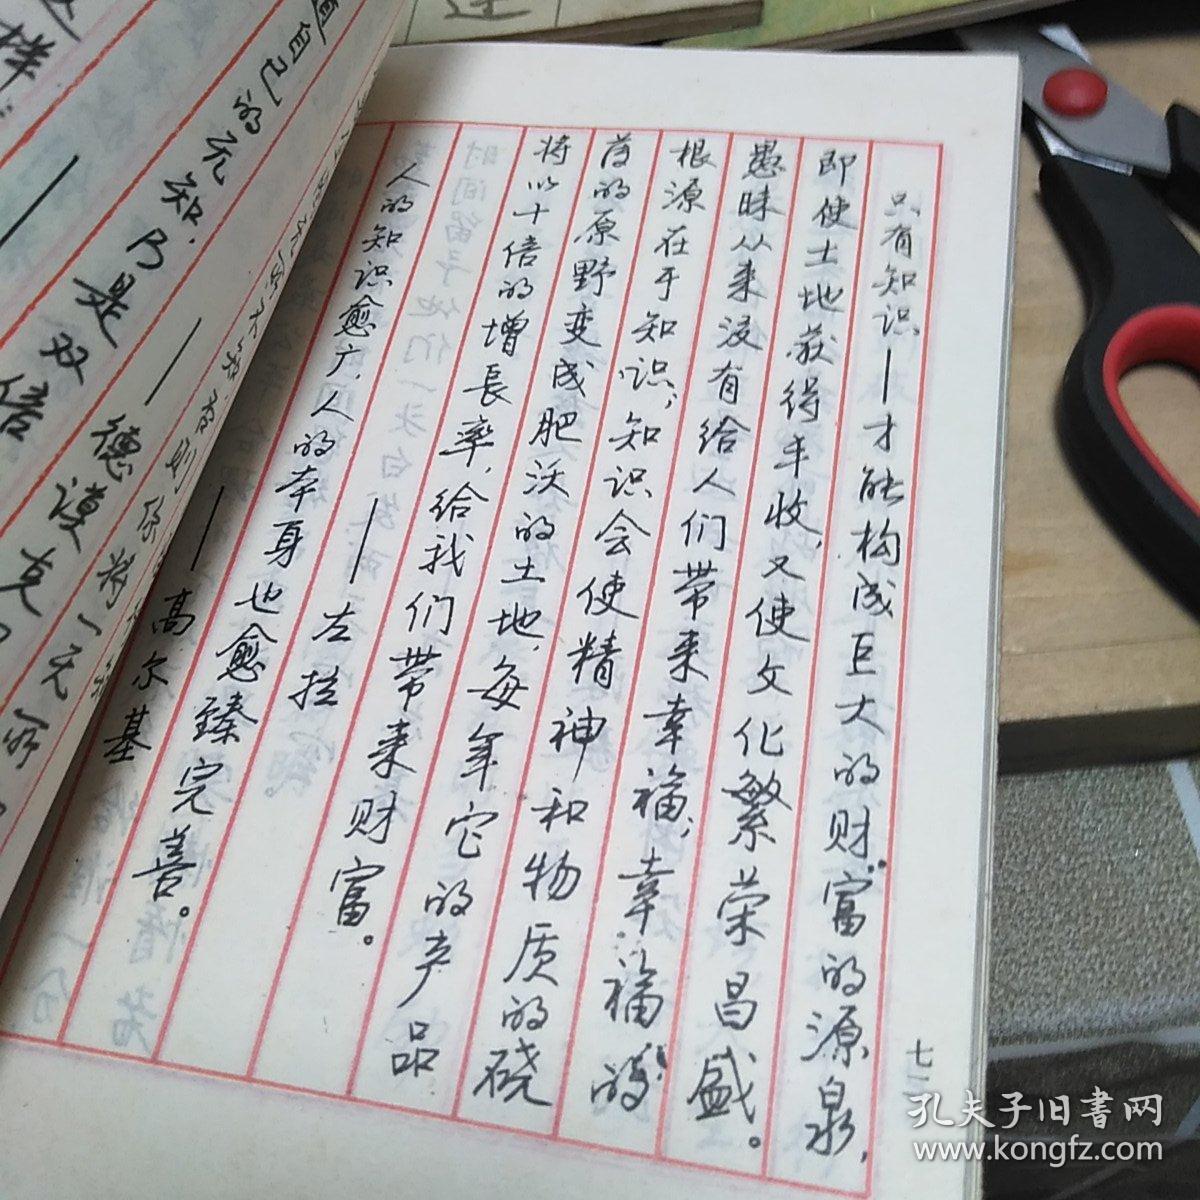 只有知识——才能构成巨大的财富的源泉,
即使土地获得丰收,又使文化繁荣昌盛。
愚昧从来没有给人们带来幸福;幸福的
根源在于知识;知识会使精神和物质的硗
薄的原野变成肥沃的土地,每年它的产品
将以十倍的增長率,给我们带来财富。
——左拉
人的知识愈广,人的本身也愈臻完善。
——高尔基
自己的无知,乃是双倍
——德谟克
七
孔夫子旧书网
www.kongfz.com